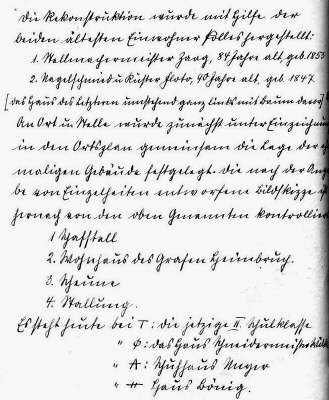 Die Rekonstruktion wurde mit Hilfe der
beiden ältesten Einwohner Ellieshergestellt:
1. Stellmachermeister Zaag, 84 Jahre alt, geb. 1853
2. Nagelschmied u Küster Floto, 90 Jahre alt, geb. 1847.
[das Haus des Letzteren umstehend ganz links mit Baum davor]
An Ort u. Stelle wurde zunächst unter Einzeichnun
in den Ortsplan gemeinsam die Lage der e
maligen Gebäude festgelegt. Die nach der Anga
be von Einzelheiten entworfene Bildskizze
hernach von den oben Genannten kontrollier
1 Schafstall
2. Wohnhaus des Grafen Heimbruch.
3. Scheune
4. Stallung.
Es steht heute bei T: die jetzige II. Schulklasse
" Φ: das Haus Schneidermeister
" A: Schuhhaus Meyer
" H Haus Bönig.